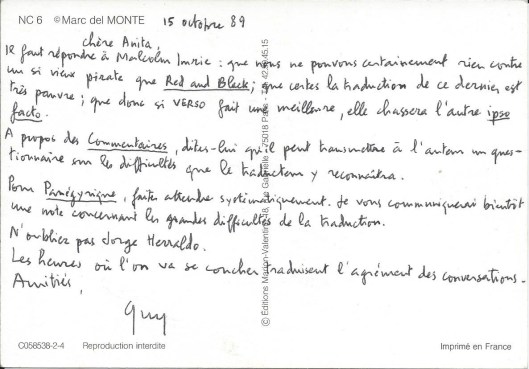 NC 6 © Marc del MONTE 15 octobre 89
chère Anita,
Il faut répondre à Malcolm Imrie : que nous ne pouvons certainement rien contre
un si vieux pirate que Red and Black ; que certes la traduction de ce dernier est
très pauvre ; que donc si VERSO fait une meilleure, elle chassera l'autre ipso
facto.
A propos des Commentaires, dites-lui qu'il peut transmettre à l'auteur un ques-
tionnaire sur les difficultés que le traducteur y reconnaîtra.
Pour Panégyrique, faites attendre systématiquement. Je vous communiquerai bientôt
une note concernant les grandes difficultés de la traduction.
N'oubliez pas Jorge Herralde.
Les heures où l'on va se coucher traduisent l'agrément des conversations.
Amitiés,
Guy
© Editions Marion-Valentine 75018 Paris
C058538-2-4 Reproduction interdite Imprimé en France